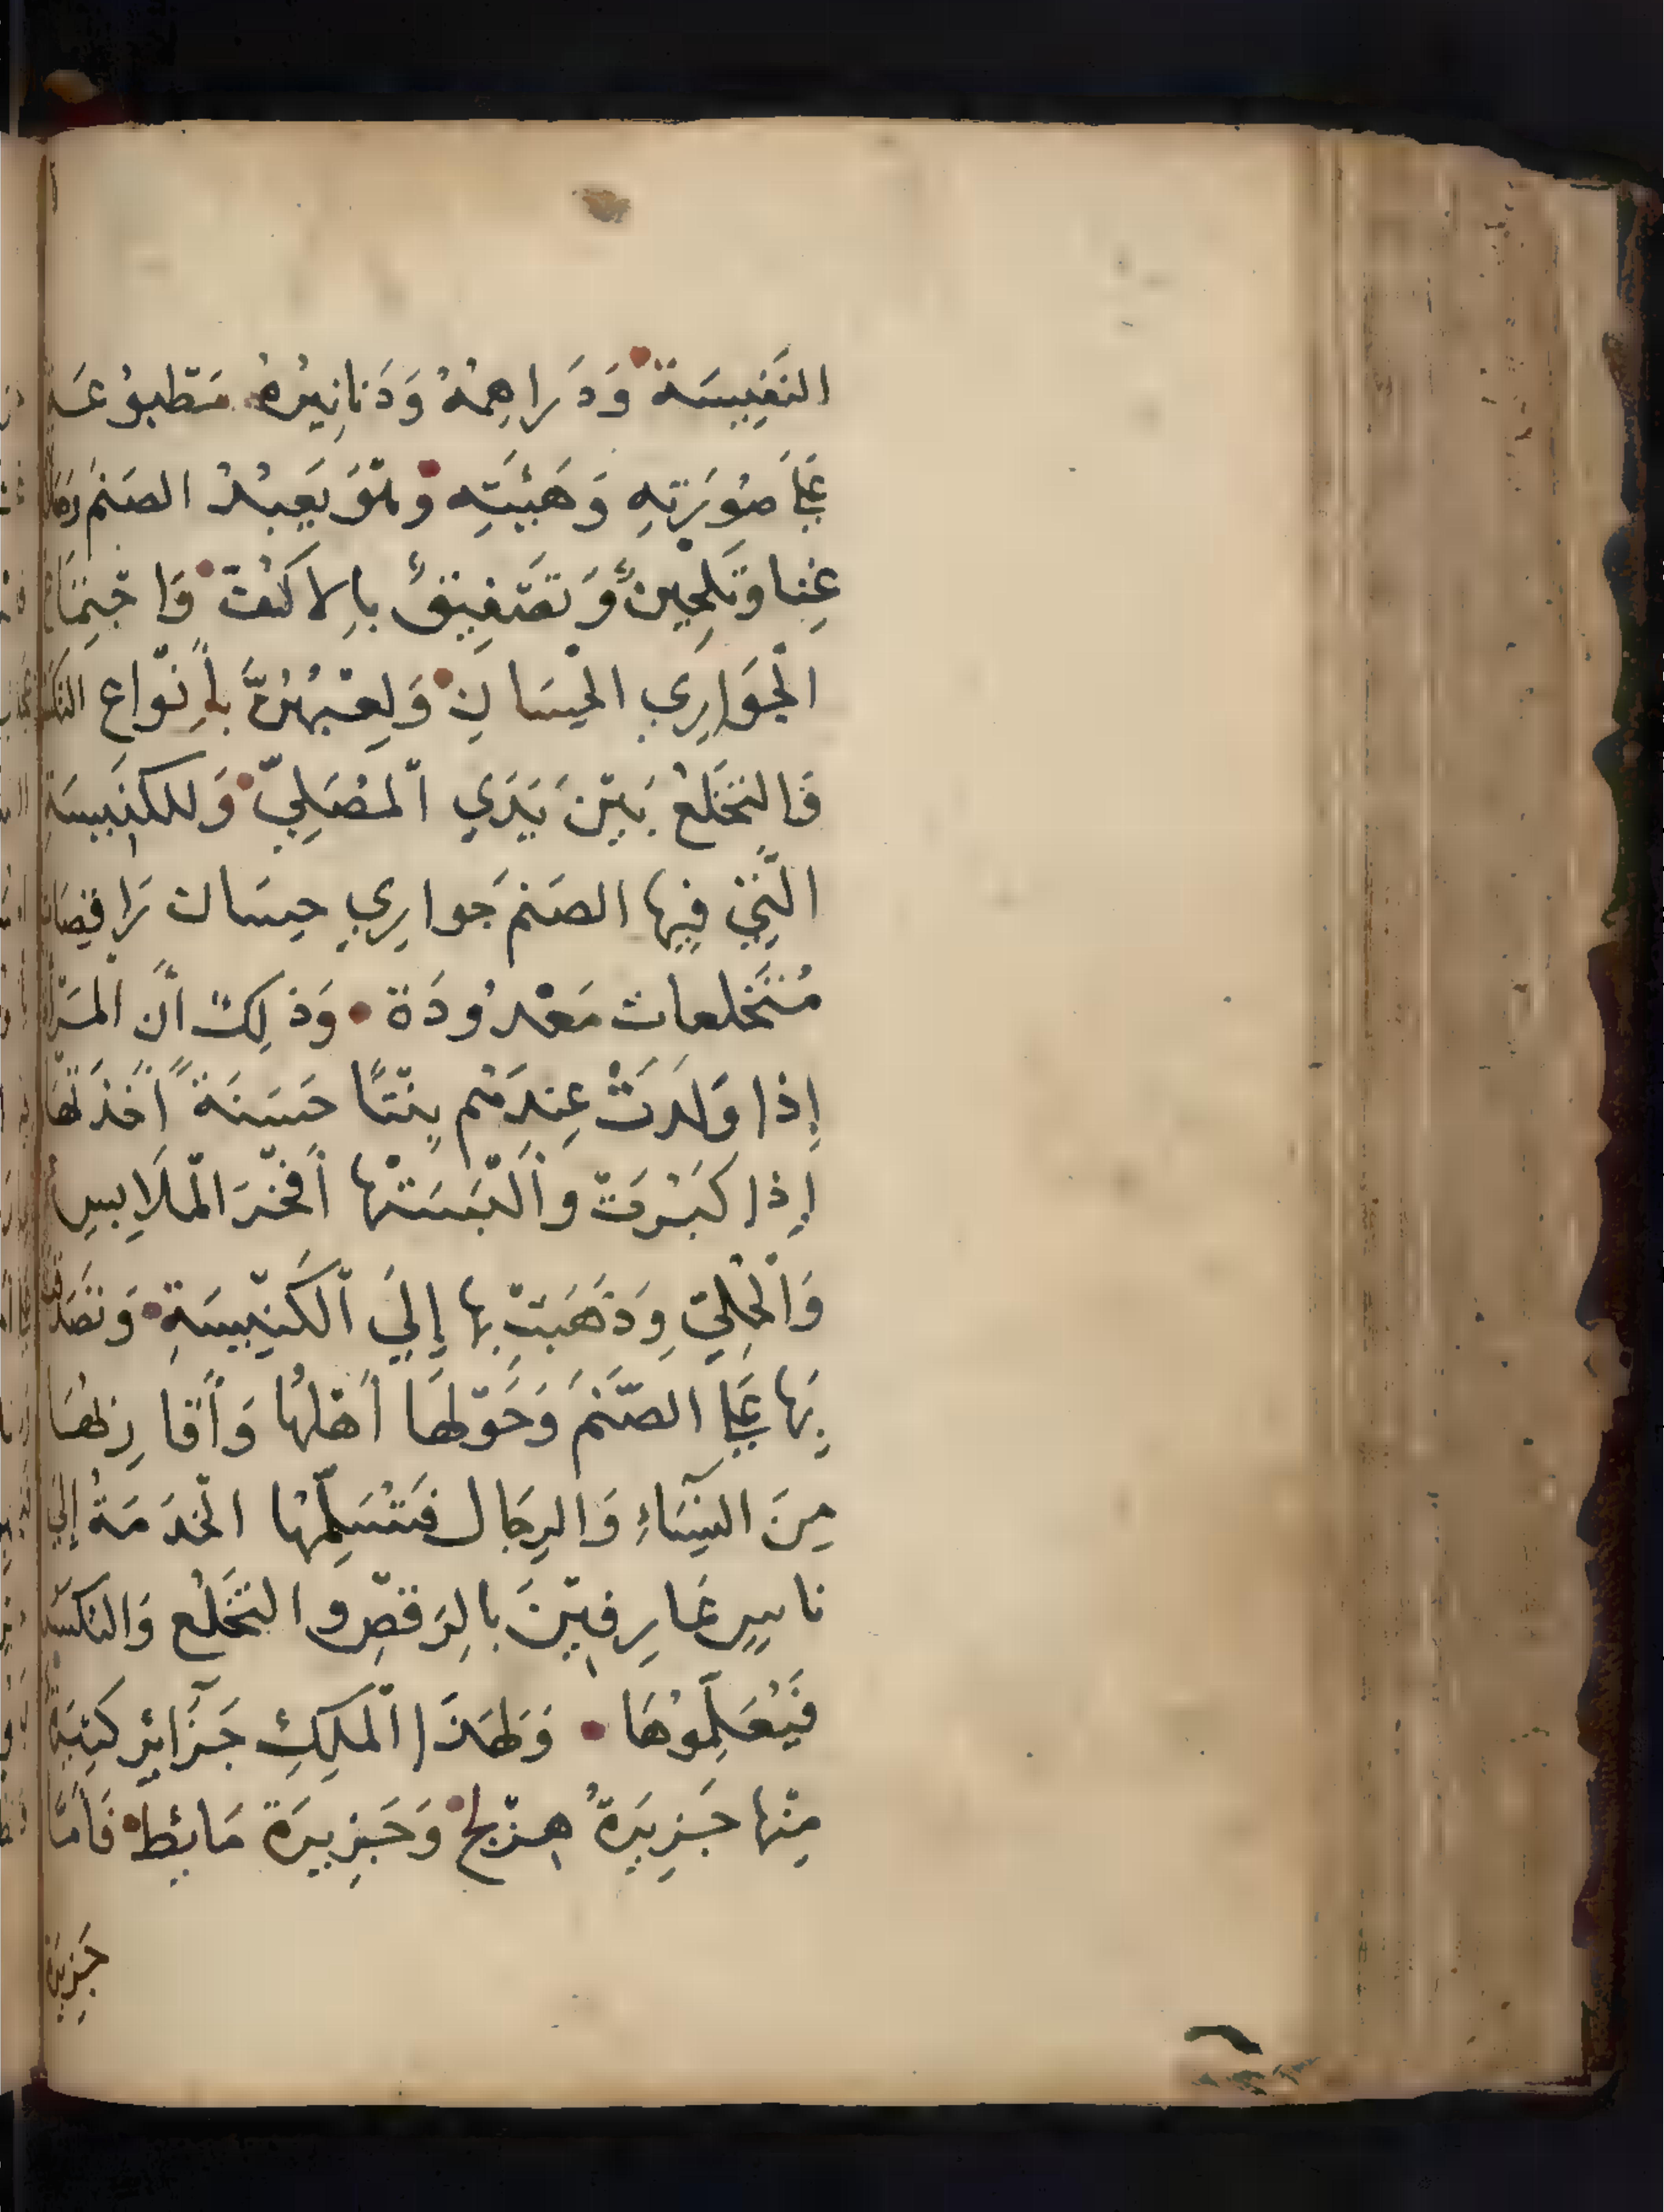 النَفِيسَة وَدَراهِمُهُ وَدَنانِيرُهُ مَطبوُعَة
عَلَى صُورَتِهِ وَهَيْئَتِهِ وَهُوَ يَعبُدُ الصَنَم
غِنا وَتَلحِين وَتَصفِيق بِالاكُفّ وَاجتِمَاع
الجوَارِي الحِسَانِ وَلِعْبِهُنَّ بِأنْوَاعِ
وَالتَخَلُّع بَيْنَ يَدَي المُصَلِيّ وَللكنِيسَةِ
الَّتِي فِيها الصَنَم جَوارِي حِسَان رَاقِصَات
مُتَخلعات مَعْدُودَة وَذلِكَ أنَّ المَرْأة
إذا وَلَدَتْ عِندَهُم بِنْتًا حَسَنَةً أخَذَتهَا
إذا كَبُرَتْ وَألْبَسَتْها أفْخَرَ المَلَابِسِ
وَالْحُلِيّ وَذَهَبَتْ بِها إلَي الكَنِيسَةِ وَتَصَدقت
بِهَا عَلَى الصَّنَمَ وَحَوْلهَا أهْلُهَا وَأَقَارِبُهَا
مِنَ النِسَاءِ وَالرِجَال فَتُسَلِّمُها الخَدَمَةُ إلَي
ناسٍ عَارِفِيْنَ بالرَقْصِ والتَخَلُّع وَالتكسّر
فَيُعَلِّمُوْهَا وَلِهَذَا المَلِكِ جَزَائِر كَثِيرَة
مِنْها جَزِيرَةُ هِرْبَلج وَجَزِيرَة مَائِط فَأمَّا
جَزِيرَة